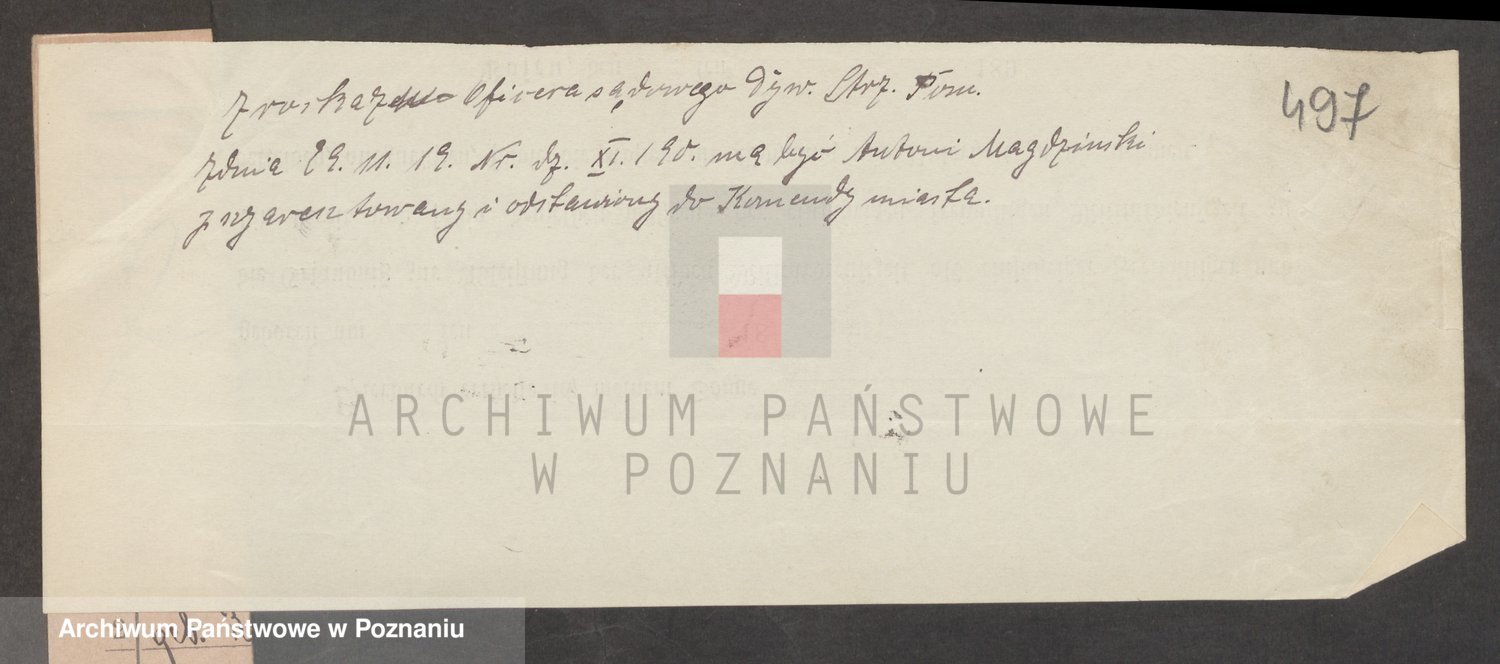 497
z roskazu Oficera sądowego Dyw. Strz. Pom.
z dnia 29. 11. 19. Nr. dz. XI. 190. ma być Antoni Magdzinski
z
i odstawiony do Komendy miasta.
ARCHIWUM PAŃSTWOWE
W POZNANIU
geb.
Archiwum Państwowe w Poznaniu